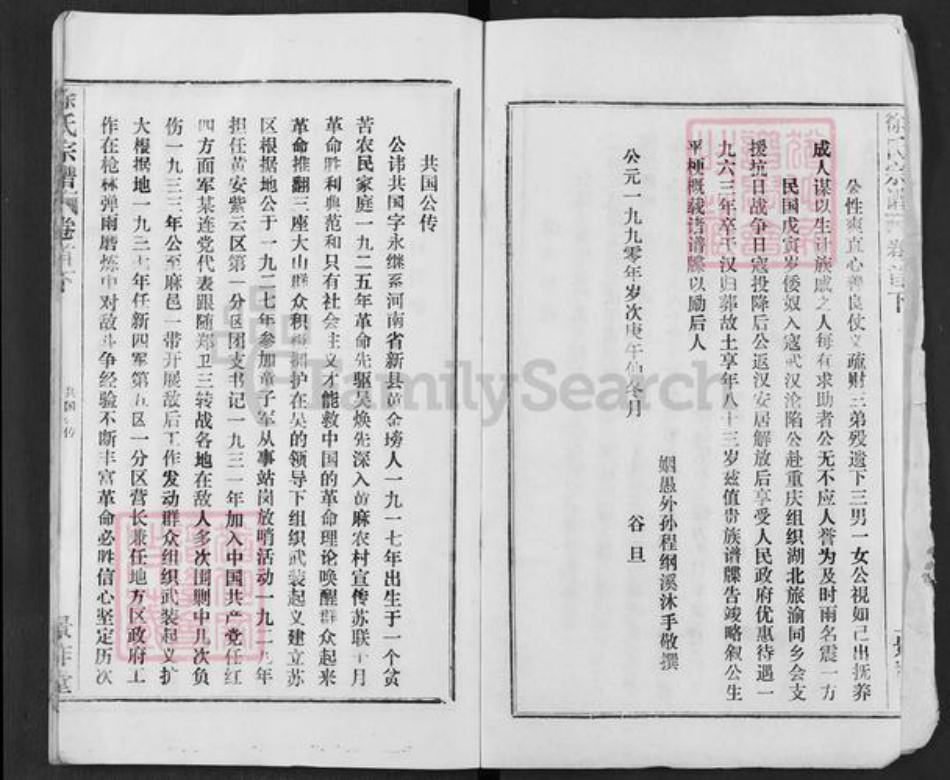 公性爽直心善良仗义疏财三弟殁遗下三男一女公视如己出抚养
成人谋以生计族戚之人每有求助者公无不应人誉为及时雨名震一方
民国戊寅岁倭奴入寇武汉沦陷公赴重庆组织湖北旅渝同乡会支
援抗日战争日寇投降后公返汉安居解放后享受人民政府优惠待遇一
九六三年卒于汉归葬故土享年八十三岁兹值贵族谱牒告竣略叙公生
平梗概载诸谱牒以励后人
姻愚外孙程纲溪沐手敬撰
公元一九九零年岁次庚午仲冬月 谷旦
徐氏宗谱 卷首下
共国公传
公讳共国字永继系河南省新县黄金塝人一九一七年出生于一个贫
苦农民家庭一九二五年革命先驱吴焕先深入黄麻农村宣传苏联十月
革命胜利典范和只有社会主义才能救中国的革命理论唤醒群众起来
革命推翻三座大山群众积极拥护在吴的领导下组织武装起义建立苏
区根据地公于一九二七年参加童子军从事站岗放哨活动一九二九年
担任黄安紫云区第一分区团支书记一九三一年加入中国共产党任红
四方面军某连党代表跟随郑卫三转战各地在敌人多次围剿中几次负
伤一九三三年公至麻邑一带开展敌后工作发动群众组织武装起义扩
大根据地一九三七年任新四军第五区一分区营长兼任地方区政府工
作在枪林弹雨磨炼中对敌斗争经验不断丰富革命必胜信心坚定历次
徐氏宗谱 卷首下
共国公传
FamilySearch